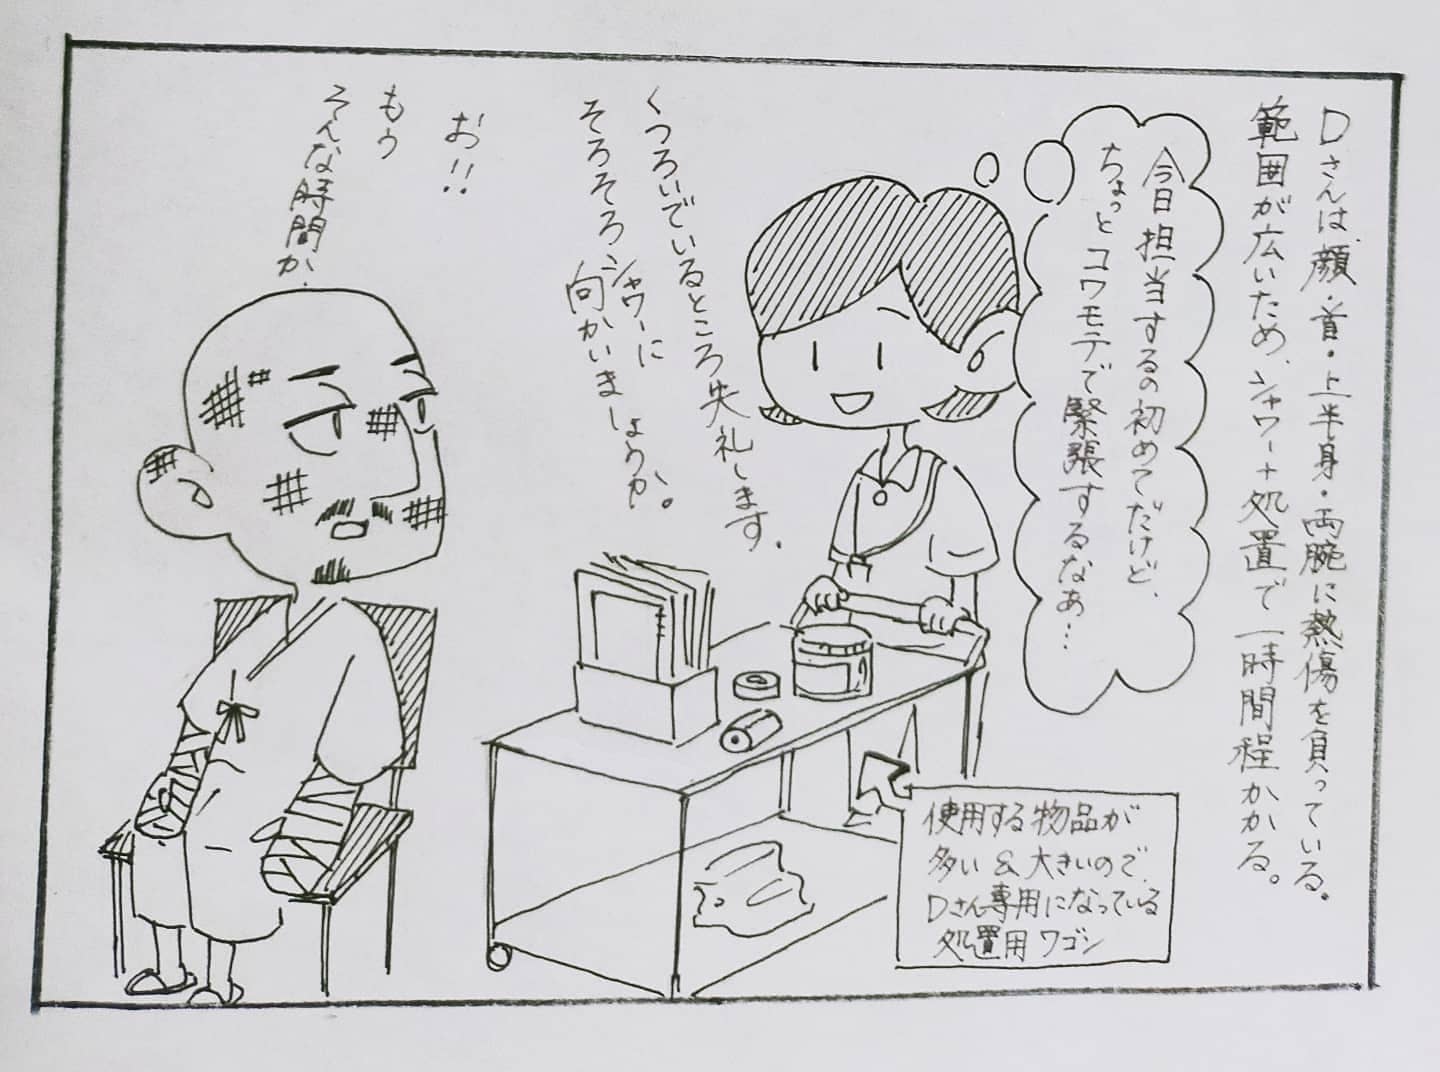 Dさんは、顔・首・上半身・両腕に熱傷を負っている。
範囲が広いため、シャワー+処置で一時間程かかる。
今日担当するの初めてだけど、
ちょっとコワモテで緊張するなぁ…
くつろいでいるところ失礼します。
そろそろシャワーに
向かいましょうか。
お!!
もう
そんな時間か、
使用する物品が
多い&大きいので、
Dさん専用になっている
処置用ワゴン